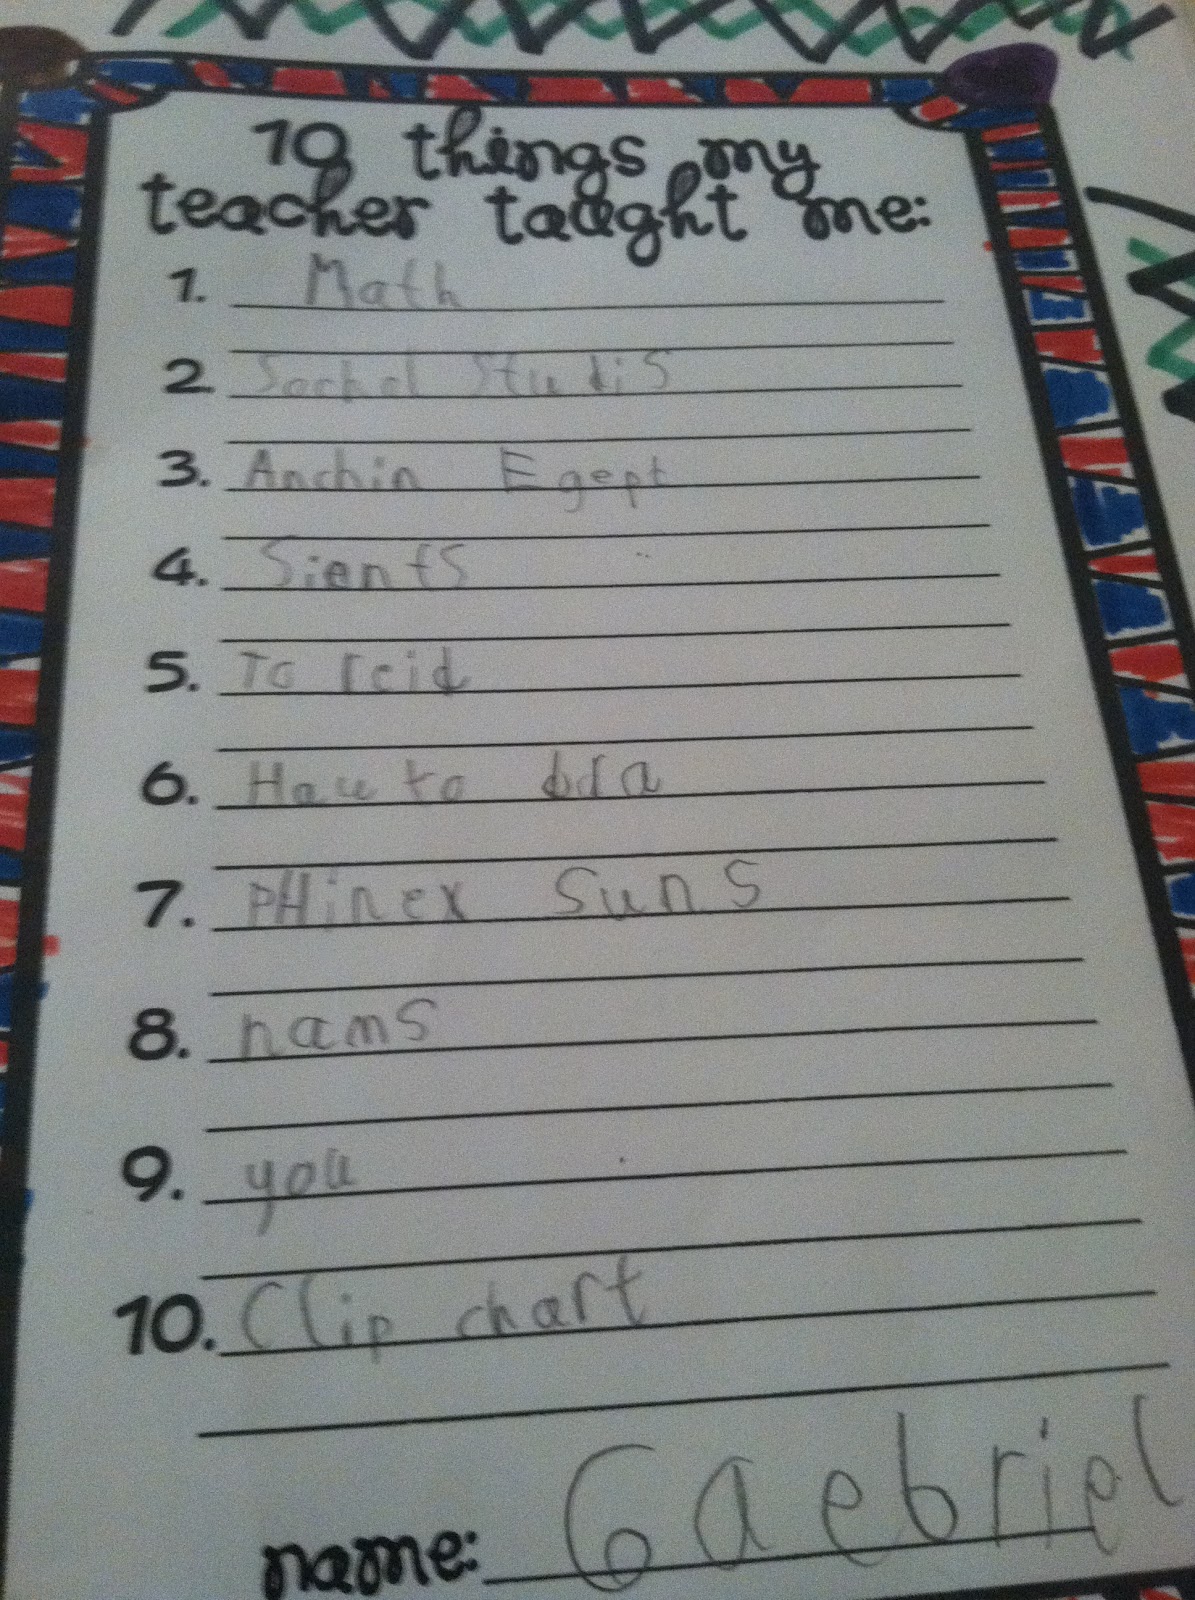 10 things my
teacher taught me:
1. Math
2. Sochol Studis
3. Anchin Egept
4. Sients
5. To reid
6. How to dra
7. pHinex Suns
8. nams
9. you
10. Clip chart
name: Gaebriel